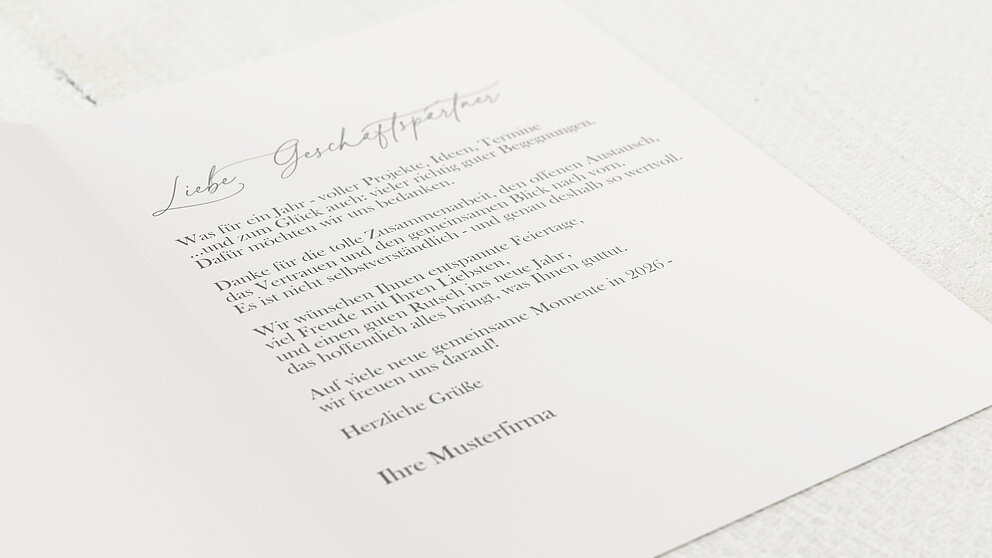 Liebe Geschäftspartner
Was für ein Jahr - voller Projekte, Ideen, Termine
...und zum Glück auch: vieler richtig guter Begegnungen.
Dafür möchten wir uns bedanken.
Danke für die tolle Zusammenarbeit, den offenen Austausch,
das Vertrauen und den gemeinsamen Blick nach vorn.
Es ist nicht selbstverständlich - und genau deshalb so wertvoll.
Wir wünschen Ihnen entspannte Feiertage,
viel Freude mit Ihren Liebsten,
und einen guten Rutsch ins neue Jahr,
das hoffentlich alles bringt, was Ihnen guttut.
Auf viele neue gemeinsame Momente in 2026 -
wir freuen uns darauf!
Herzliche Grüße
Ihre Musterfirma